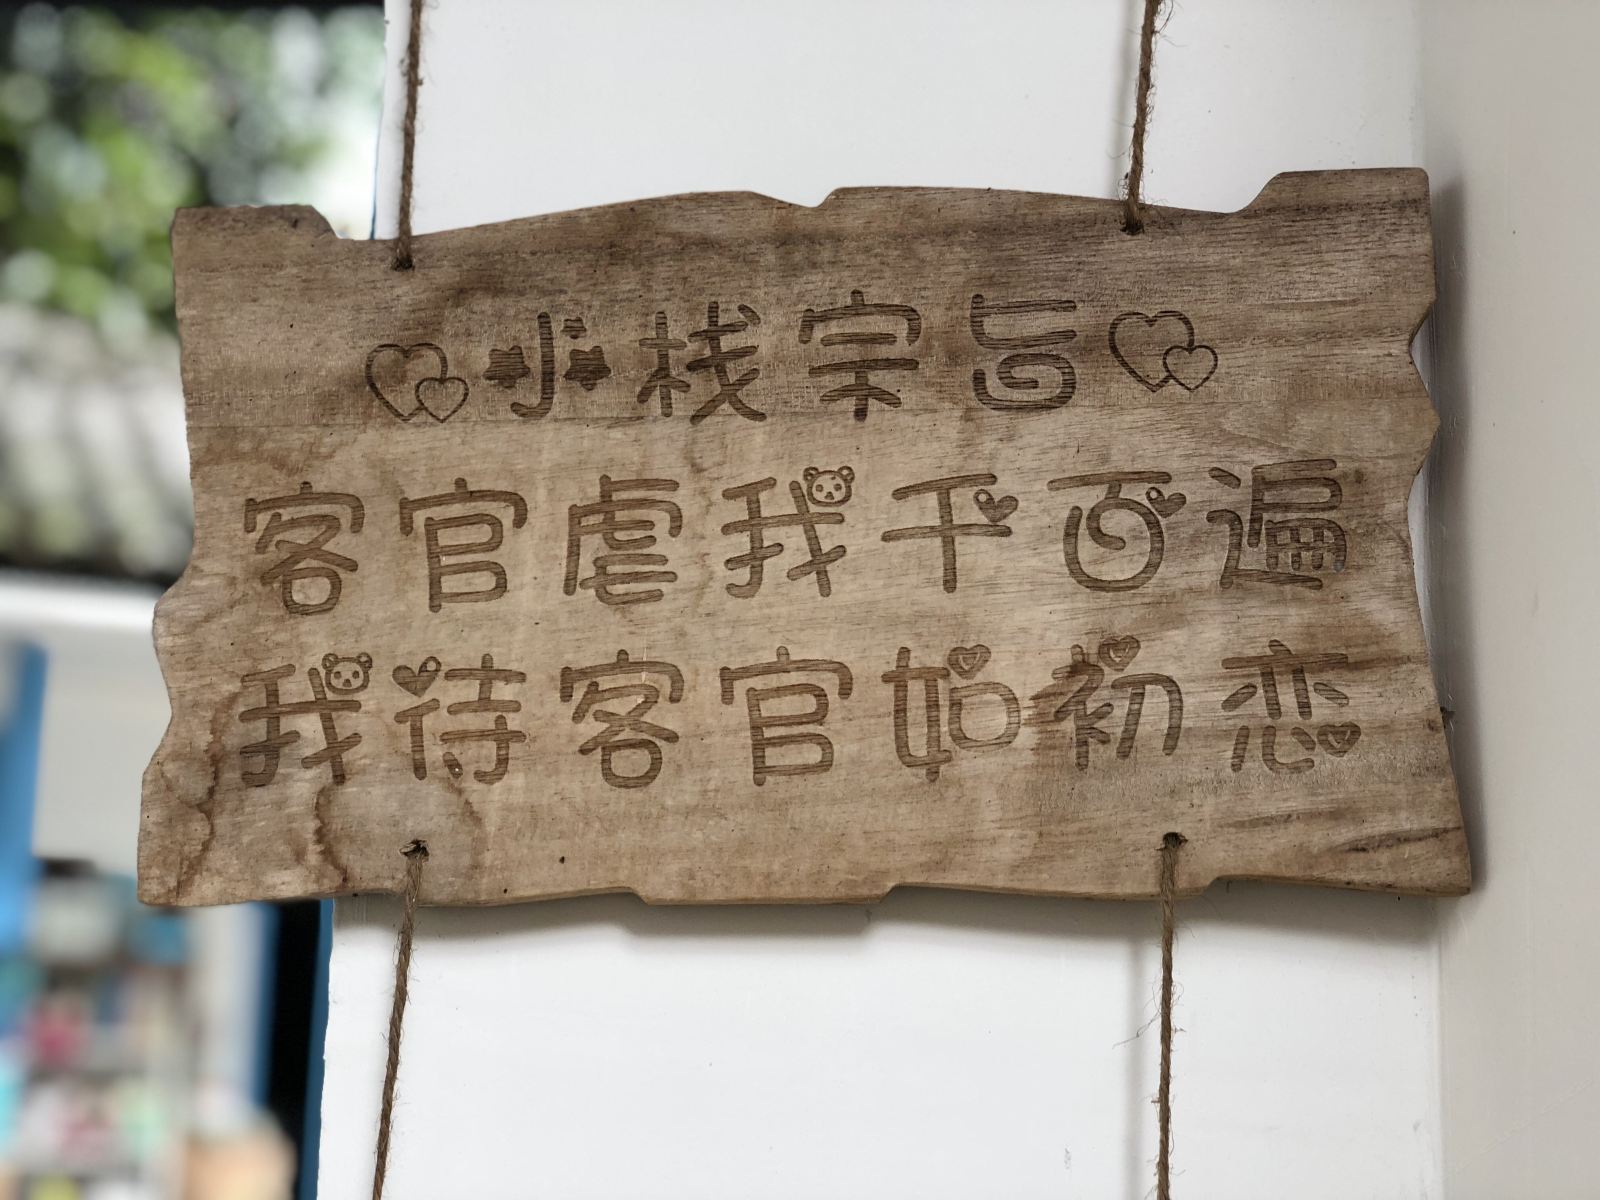 小栈宗旨
客官虐我千百遍
我待客官如初恋